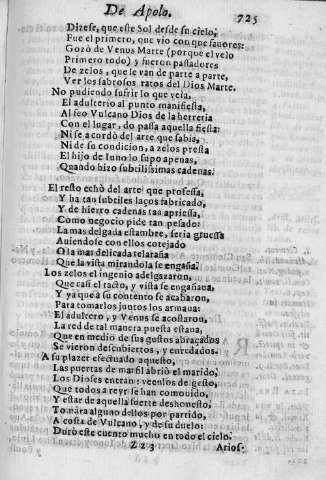 De Apolo. 725
Dizese, que este Sol desde su cielo,
Fue el primero, que vio con que fauores:
Gozò de Venus Marte (porque el velo
Primero todo) y fueron passadores
De zelos, que le van de parte a parte,
Ver los sabrosos ratos del Dios Marte.
No pudiendo sufrir lo que veìa,
El adulterio al punto manifiesta,
Al feo Vulcano Dios de la herreria
Con el lugar, do passa aquella fiesta:
Ni se acordò del arte que sabia,
Ni de su condicion, a zelos presta
El hijo de Iuno lo supo apenas,
Quando hizo subtilissimas cadenas.
El resto echò del arte que professa,
Y ha tan subtiles laços fabricado,
Y de hierro cadenas tan apriessa,
Como negocio pide tan pesado:
La mas delgada estambre, seria gruessa
Auiendose con ellos cotejado
O la mas delicada telaraña
Que la vista mirandola se engaña.
Los zelos el ingenio adelgazaron,
Que casi el tacto, y vista se engañaua,
Y ya què a su contento se acabaron,
Para tomarlos juntos los armaua:
El adultero, y Venus se acostaron,
La red de tal manera puesta estaua,
Que en medio de sus gustos abraçados
Se vieron descubiertos, y enredados.
A su plazer efectuado aquesto,
Las puertas de marfil abriò el marido,
Los Dioses entran: veenlos de gesto,
Que todos a reyr se han comouido,
Y estar de aquella suerte deshonesto,
Tomara alguno dellos por partido,
A costa de Vulcano, y de su duelo:
Durò este cuento mucho en todo el cielo.
Zz3 Arios-